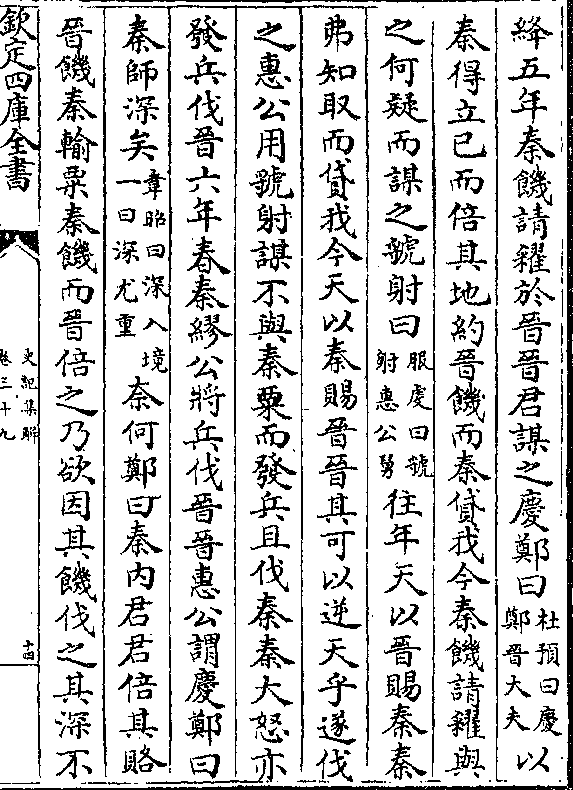 絳五年秦饑請糴於晉晉君謀之慶鄭曰杜預曰慶鄭晉大夫以
秦得立已而倍其地約晉饑而秦貸我今秦饑請糴與
之何疑而謀之虢射曰服虔曰虢射惠公舅往年天以晉賜秦秦
弗知取而貸我今天以秦賜晉晉其可以逆天乎遂伐
之惠公用虢射謀不與秦粟而發兵且伐秦秦大怒亦
發兵伐晉六年春秦繆公將兵伐晉晉惠公謂慶鄭曰
秦師深矣韋昭曰深入境一曰深尤重奈何鄭曰秦内君君倍其賂
晉饑秦輸粟秦饑而晉倍之乃欲因其饑伐之其深不
欽定四庫全書
史記集解
卷三十九
十四